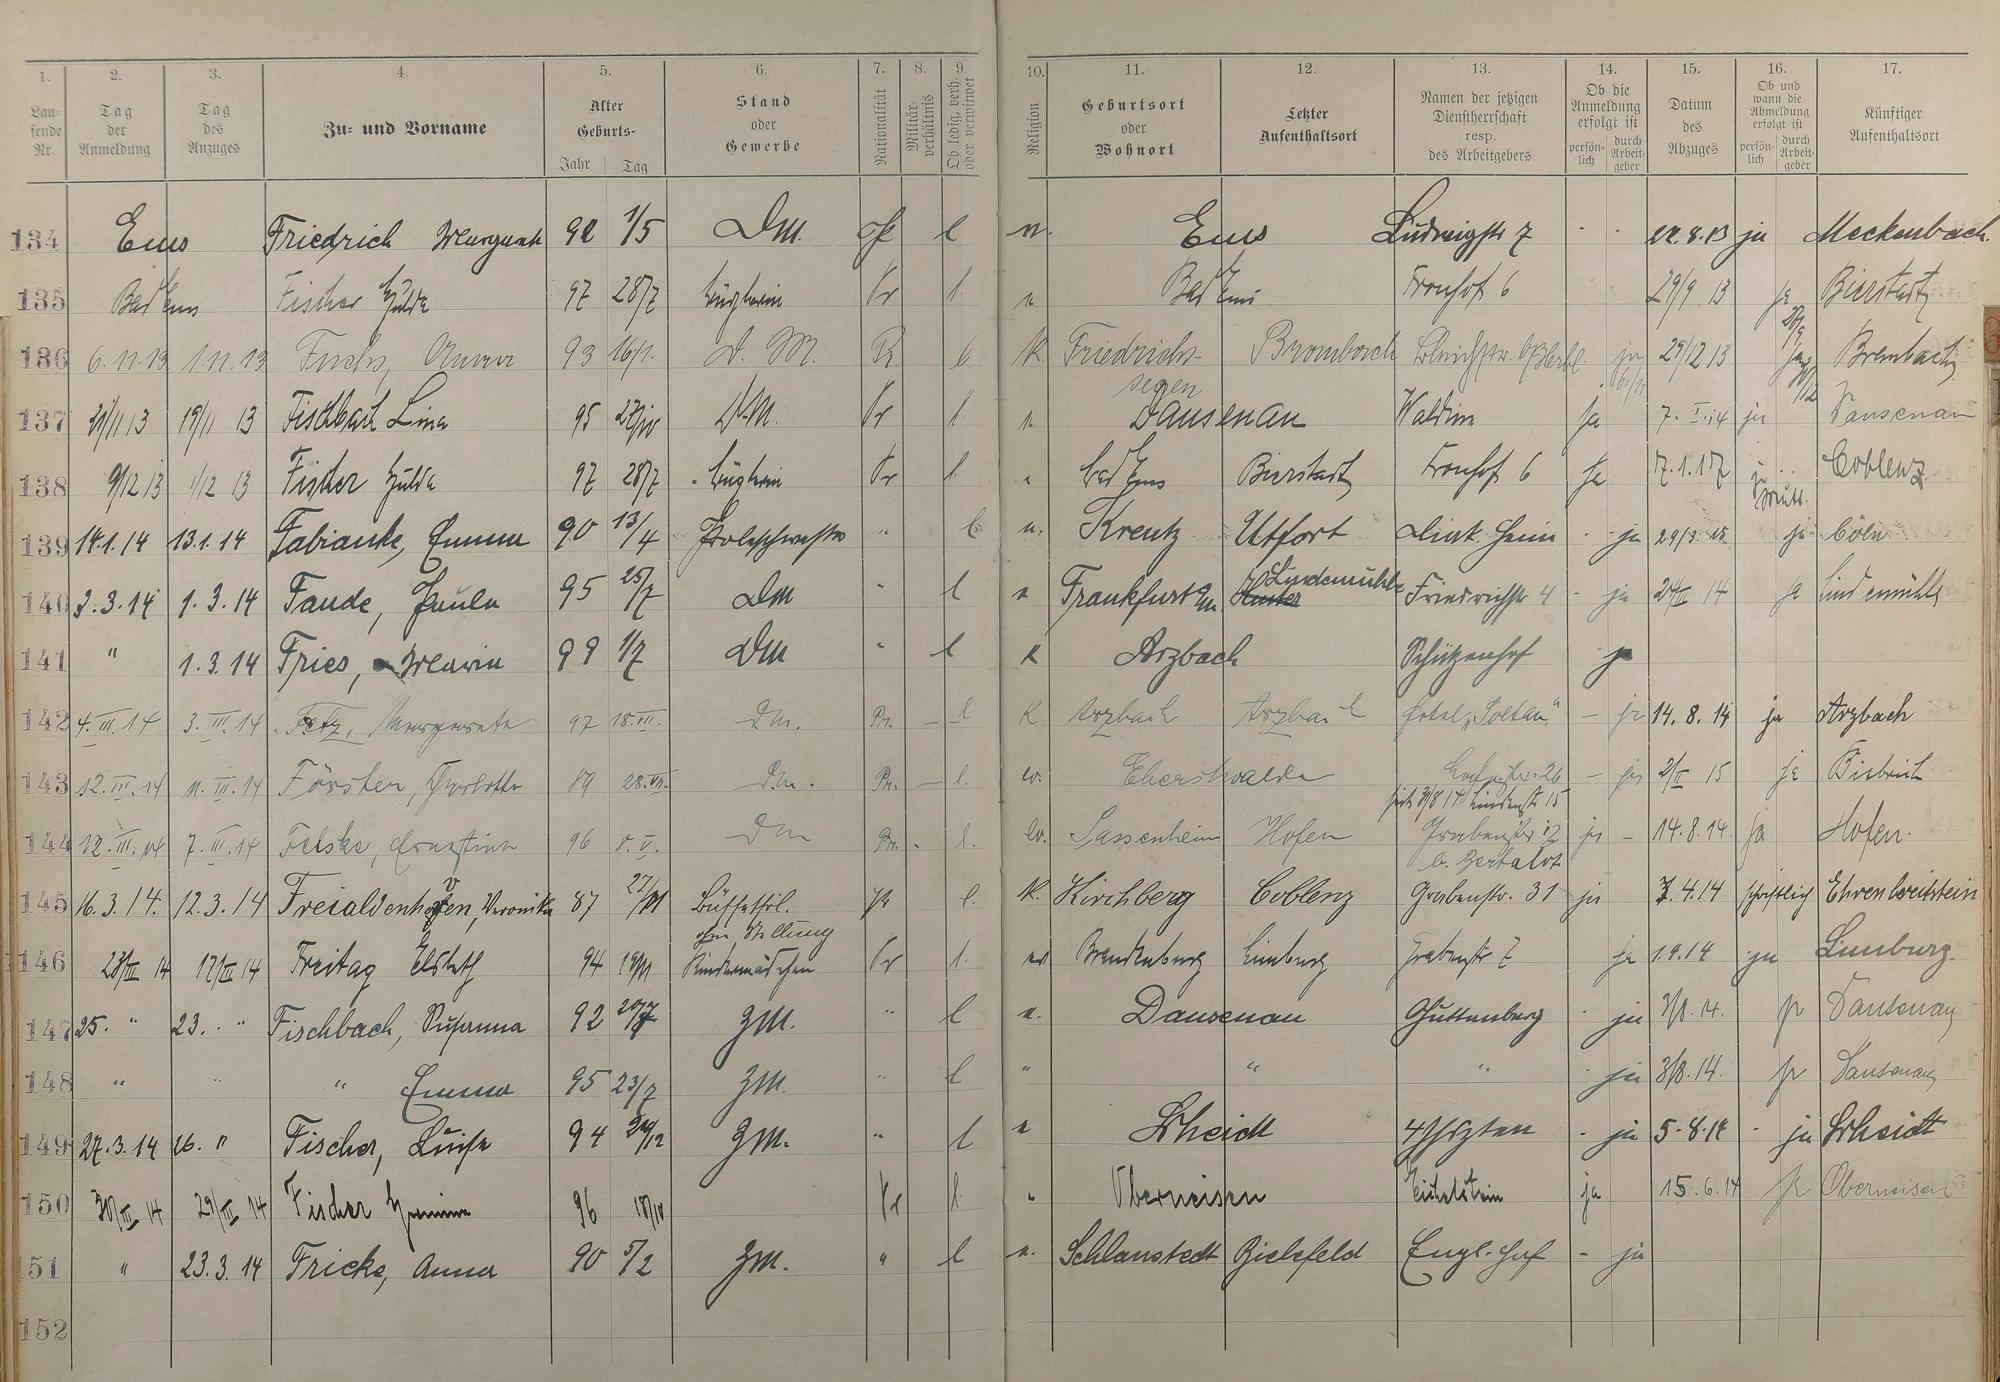 1. 2. 3. 4. 5. 6. 7. 8. 9. 10. 11. 12. 13. 14. 15. 16. 17.
Lau-fende Nr. Tag der Anmeldung Tag des Anzuges Zu- und Vorname Alter Geburts- Jahr Tag Stand oder Gewerbe Nationalität Militär-verhältnis Ob ledig, verh. oder verwitwet Religion Geburtsort oder Wohnort Letzter Aufenthaltsort Namen der jetzigen Dienstherrschaft resp. des Arbeitgebers Ob die Anmeldung erfolgt ist persön-lich durch Arbeit-geber Datum des Abzuges Ob und wann die Abmeldung erfolgt ist persön-lich durch Arbeit-geber Künftiger Aufenthaltsort
134 Ems Friedrich 92 1/5 Dm. l Ems Ludwigstr 7 22.8.13 ja Meckenbach.
135 Bad Ems Fischer Hulda 97 28/7 Pr l. Bad Ems Fronhof 6 29/9 13 ja Bierstadt
136 6.11.13 1.11.13 Fuchs, Anna 93 16/1. D. M. Pr. l. K Friedrichs- Brombach ja 29/12 13 Brembach
segen
137 21/11 13 19/11 13 Fischbach Lina 95 DM. Pr l. Dausenau ja 7. I. 14 ja Dausenau
138 9/12 13 1/12 13 Fischer Hulda 97 28/7 Pr l. Bad Ems Bierstadt Fronhof 6 ja 7.1.17 Coblenz
139 14.1.14 13.1.14 Fabianke, Emma 90 13/4 " l Kreutz Utfort Diak. Heim - ja Cöln
140 2.3.14 1.3.14 Fande, Paula 95 25/7 Dm " l Frankfurt a/m. Lindemühle Friedrichstr 4 - ja 24/III 14 ja Lindemühle
141 " 1.3.14 Fries, Maria 99 1/7 Dm " l K Arzbach Schützenhof ja
142 4. III. 14 3. III. 14 Fetz, Margareta 97 18. VII. Dm. Pr. — l K Arzbach Arzbach Hotel „Soltau" — ja 14. 8. 14 ja Arzbach
143 12. III. 14 11. III. 14 Förster, Charlotte 89 28. VII. Dm. Pr. — l. ev. Eberswalde — ja 2/II 15 ja Biebrich
seit 3/8 14 Lindenstr 15
144 12. III. 14 7. III. 14 Felske, Ernestine 96 Dm Pr. l. ev. Sassenheim Hofen Grabenstr 17 ja — 14.8.14. ja Hofen.
145 16.3.14. 12.3.14 Freialdenhoven, Veronika 87 Büffetfrl. Pr l. K. Kirchberg Coblenz Grabenstr. 31 ja 7.4.14 schriftlich Ehrenbreitstein
ohne Stellung
146 23/III 14 17/III 14 Freitag Elsbeth 94 Kindermädchen Pr l. ev Brandenburg Limburg Grabenstr 7 ja 1.9.14 ja Limburg.
147 25. " 23. " Fischbach, Susanna 92 20/7 Zm. " l Dausenau Guttenberg - ja 3/8.14. ja Dausenau
148 " " " Emma 95 23/7 Zm. " l " " " - ja 3/8.14. ja Dausenau
149 27.3.14 26. " Fischer, Luise 94 Zm. " l Scheidt 4 Jhrzten - ja 5.8.14 - ja Scheidt
150 30/III 14 29/III 14 Fischer 96 Pr l. Oberneisen ja 15.6.14 ja Oberneisen
151 " 23.3.14 Fricke, Anna 90 5/2 Zm. " l Schlanstedt Bielefeld Engl. Hof - ja
152